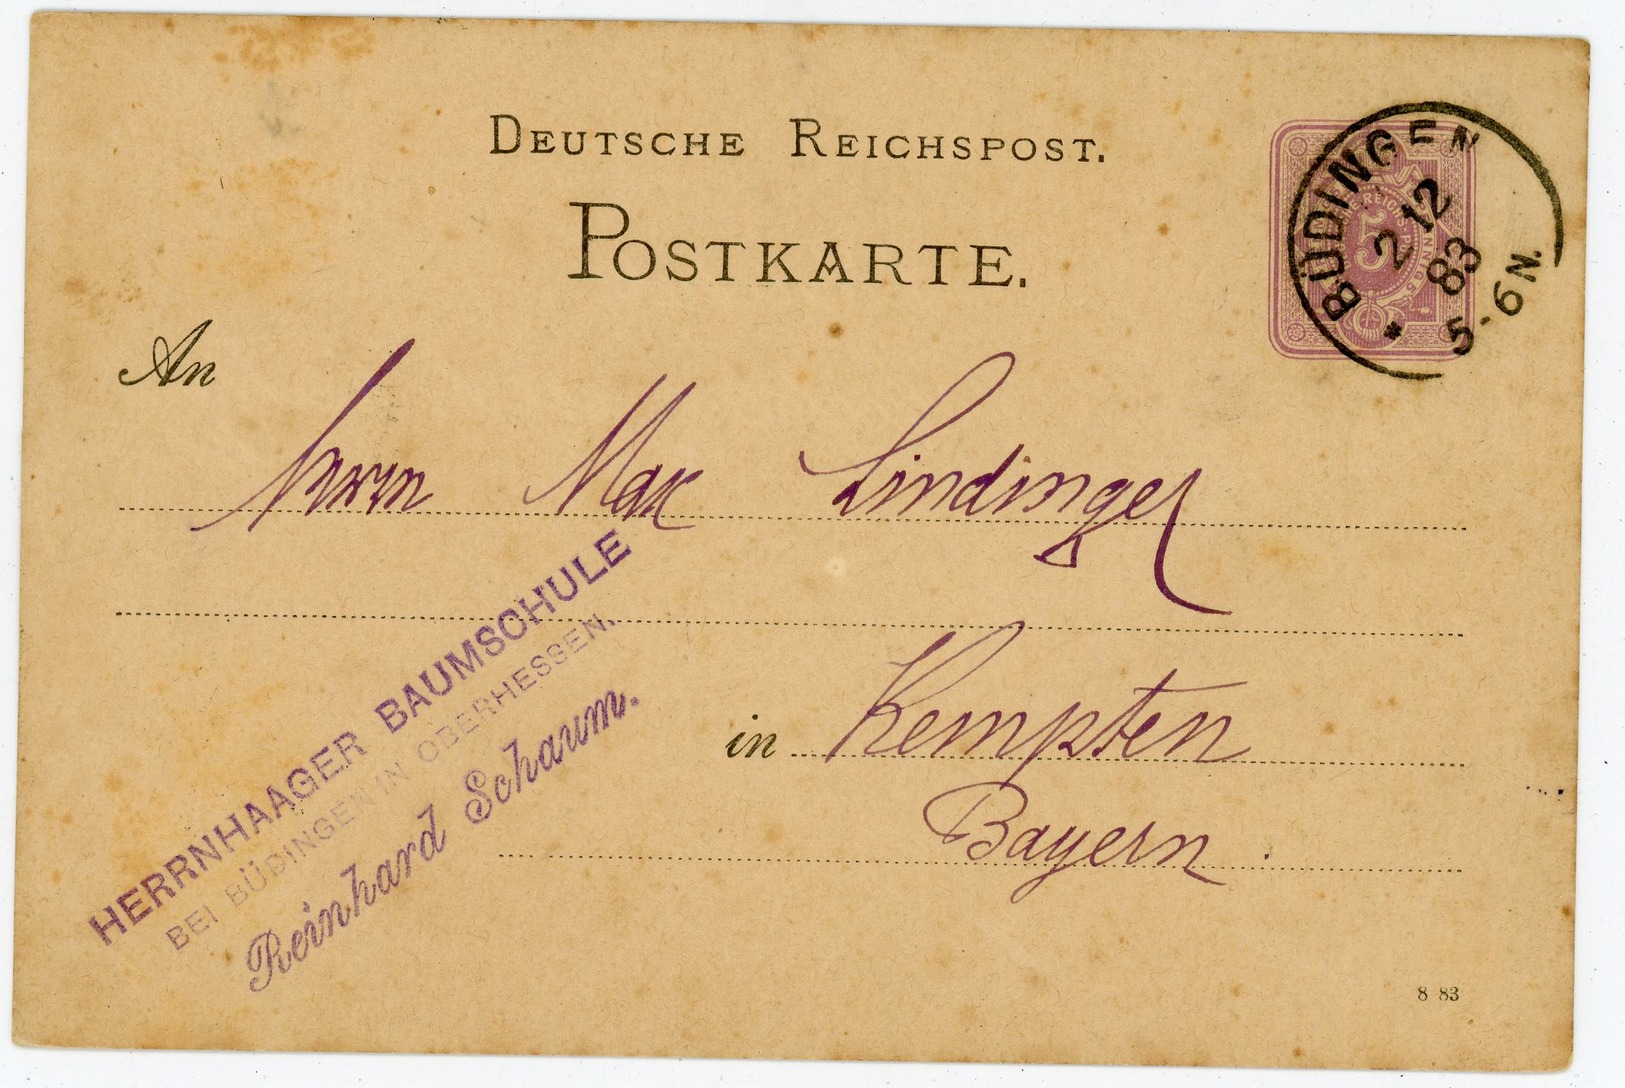 DEUTSCHE REICHSPOST.
POSTKARTE.
BÜDINGEN
2 12
83
* 5-6N.
5
An
Herrn Max Lindinger
in Kempten
Bayern
HERRNHAAGER BAUMSCHULE
BEI BÜDINGEN IN OBERHESSEN.
Reinhard Schaum.
8 83